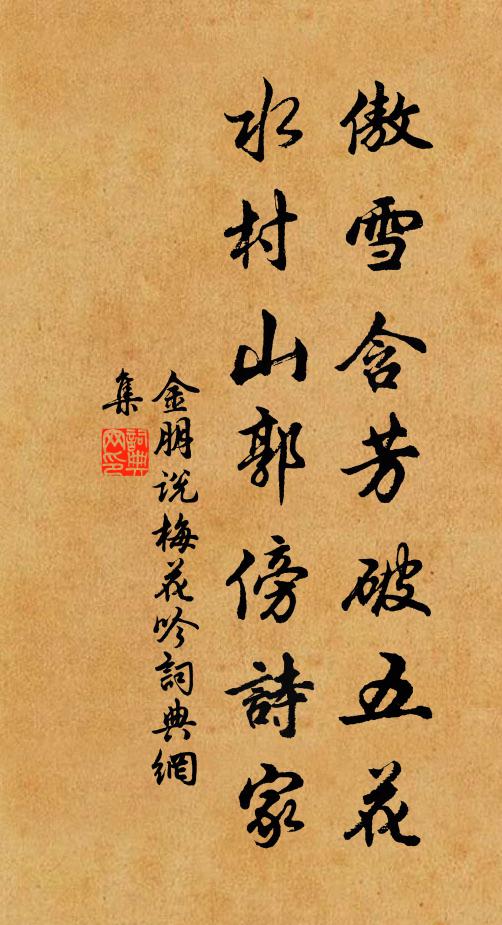 傲雪含芳破五花
水村山郭傍詩家
金朋说梅花吟詞典網
集
詞典
网印